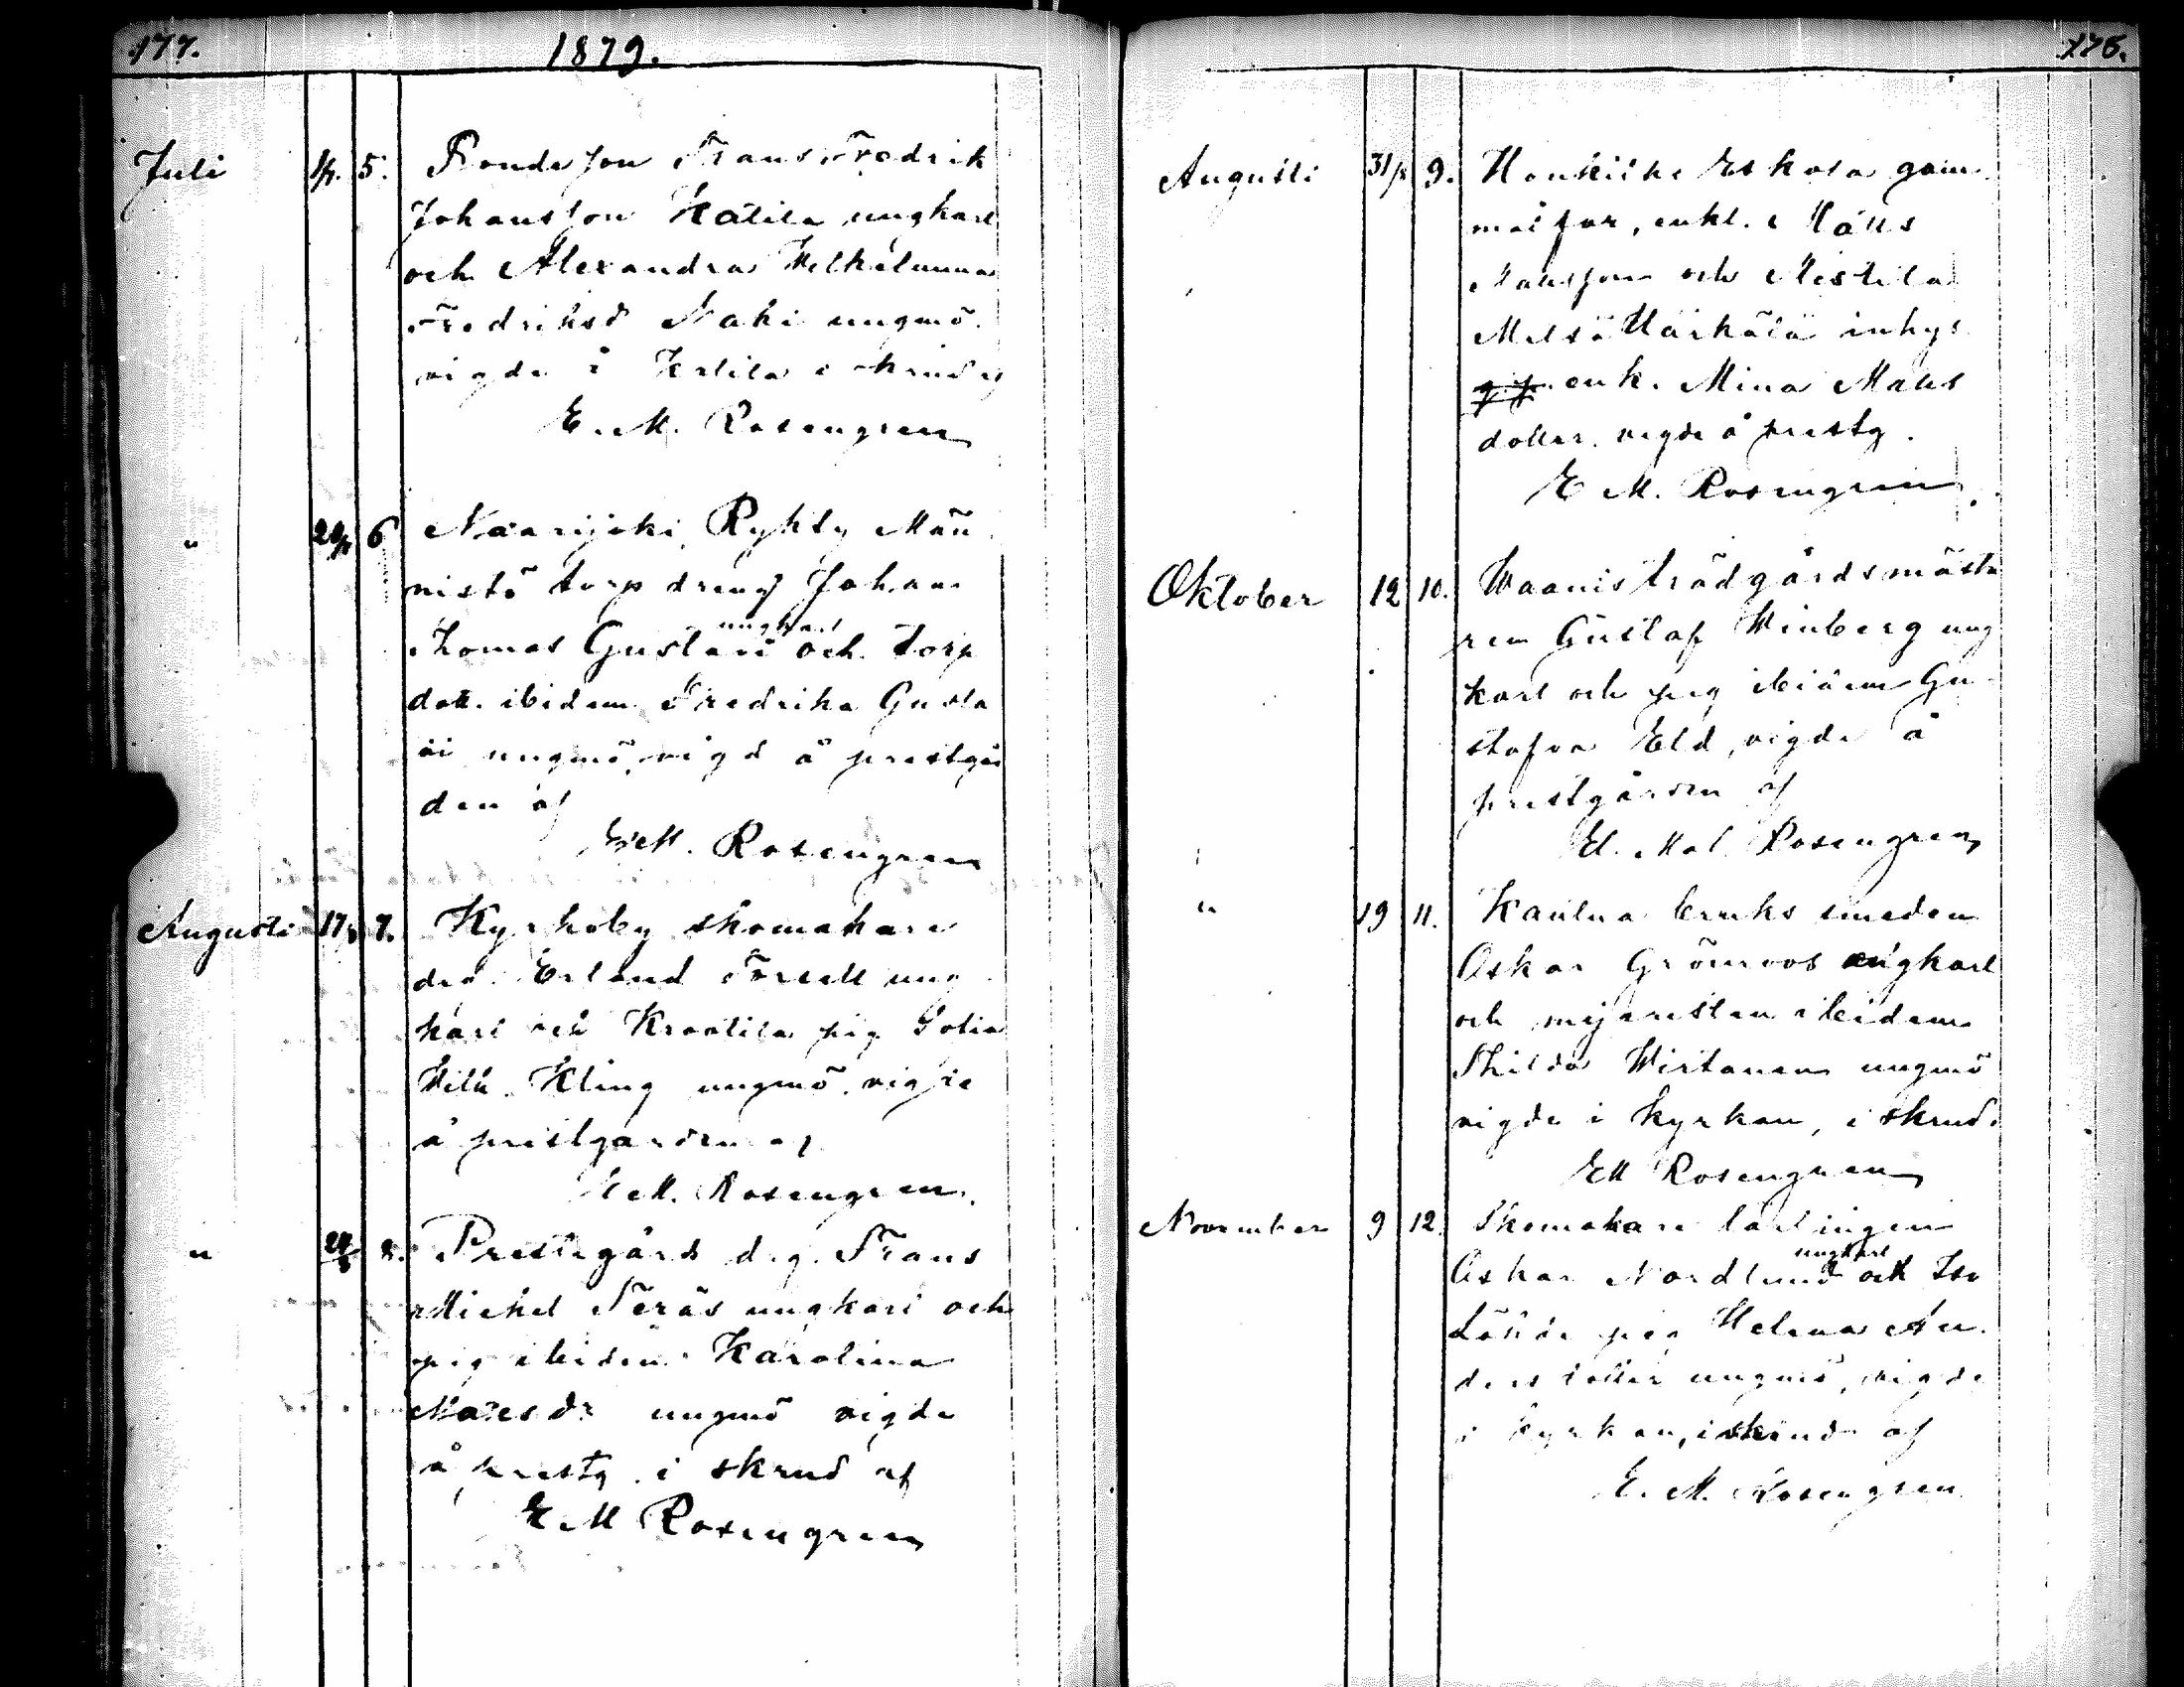 177.
1879.
Juli 1/7. 5. Bondeson Frans Fredrik
Johansson Katila ungkarl
och Alexandra Wilhelmina
Fredriksd Naki ungmö.
vigde i Katila i skrud af
E. M. Rosengren
" 20/7 6 Naarijoki, Ryhty Män
nistö torp dreng Johan
ungkarl
Thomas Gustavi och torp
dott. ibidem Fredrika Gusta
vi ungmö, vigd å prestgår
den af
E. M. Rosengren
Augusti 17/8 7. Kyrkoby skomakare
Erland Forsell ung
karl och Krootila pig. Sofia
Wilh. Kling ungmö, vigde
å prestgården af
E. M. Rosengren.
" 24/8 8. Prestegårds drg. Frans
Michel Teräs ungkarl och
pig ibidem Karolina
Matesdr ungmö vigde
å prestg. i skrud af
E M Rosengren
178.
Augusti 31/8 9. Eskola gam
malfar, enkl. Matts
Mattsson och Mestila
Metsä Härkälä inhys
enk. Mina Matts
dotter. vigde å prestg.
E M. Rosengren
Oktober 12 10. Waanis trädgårdsmästa
ren Gustaf Winberg ung
karl och pig ibidem Gu
stafva Eld, vigde å
prestgården af
E. Mal. Rosengren
" 19 11. Kautua bruks smeden
Oskar Grönroos ungkarl
och mejeristen ibidem
Thilda Wirtanen ungmö
vigde i kyrkan, i skrud.
EM Rosengren
November 9 12. Skomakare lärlingen
ungkarl
Oskar Nordlund och Iso
pig Helena An
dersdotter ungmö, vigde
i kyrkan, i skrud af
E. M. Rosengren